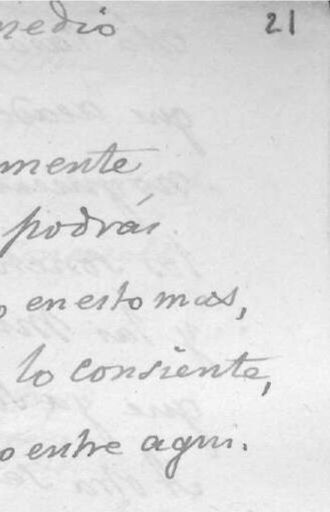 medio 21
mente
podrás
o en esto mas,
lo consiente,
o entre aqui.